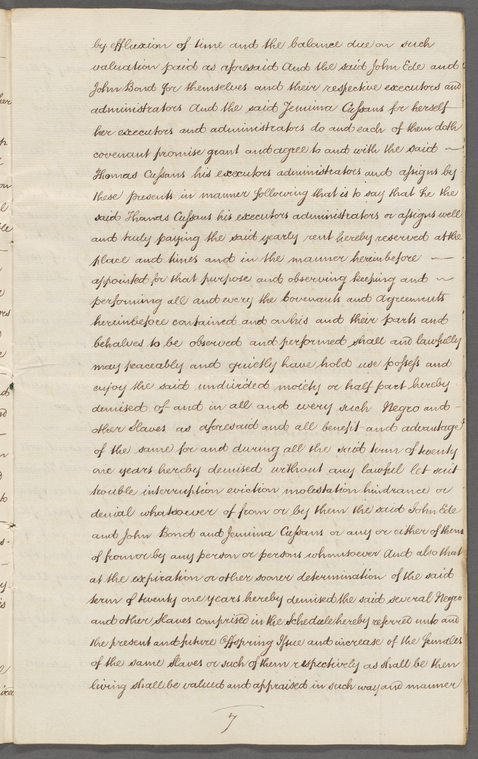 by effluxion of time and the balance due on such
valuation paid as aforesaid And the said John Ede and
John Bond for themselves and their respective executors and
administrators And the said Jemima Cussans for herself
her executors and administrators do and each of them doth
covenant promise grant and agree to and with the said —
Thomas Cussans his executors administrators and assigns by
these presents in manner following that is to say that he the
said Thomas Cussans his executors administrators or assigns well
and truly paying the said yearly rent hereby reserved at the
place and times and in the manner hereinbefore —
appointed for that purpose and observing keeping and ~
performing all and every the Covenants and Agreements
hereinbefore contained and on his and their parts and
behalves to be observed and performed shall and lawfully
may peaceably and quietly have hold use possess and
enjoy the said undivided moiety or half part hereby
demised of and in all and every such Negro and -
other slaves as aforesaid and all benefit and advantage
of the same for and during all the said term of twenty
one years hereby demised without any lawful let suit
trouble interruption eviction molestation hindrance or
denial whatsoever of from or by them the said John Ede
and John Bond and Jemima Cussans or any or either of them
of from or by any person or persons whomsoever And also that
at the expiration or other sooner determination of the said
term of twenty one years hereby demised the said several Negro
and other Slaves comprised in the Schedule hereby referred unto and
the present and future Offspring Issue and increase of the females
of the same Slaves or such of them respectively as shall be then
living shall be valued and appraised in such way and manner
7